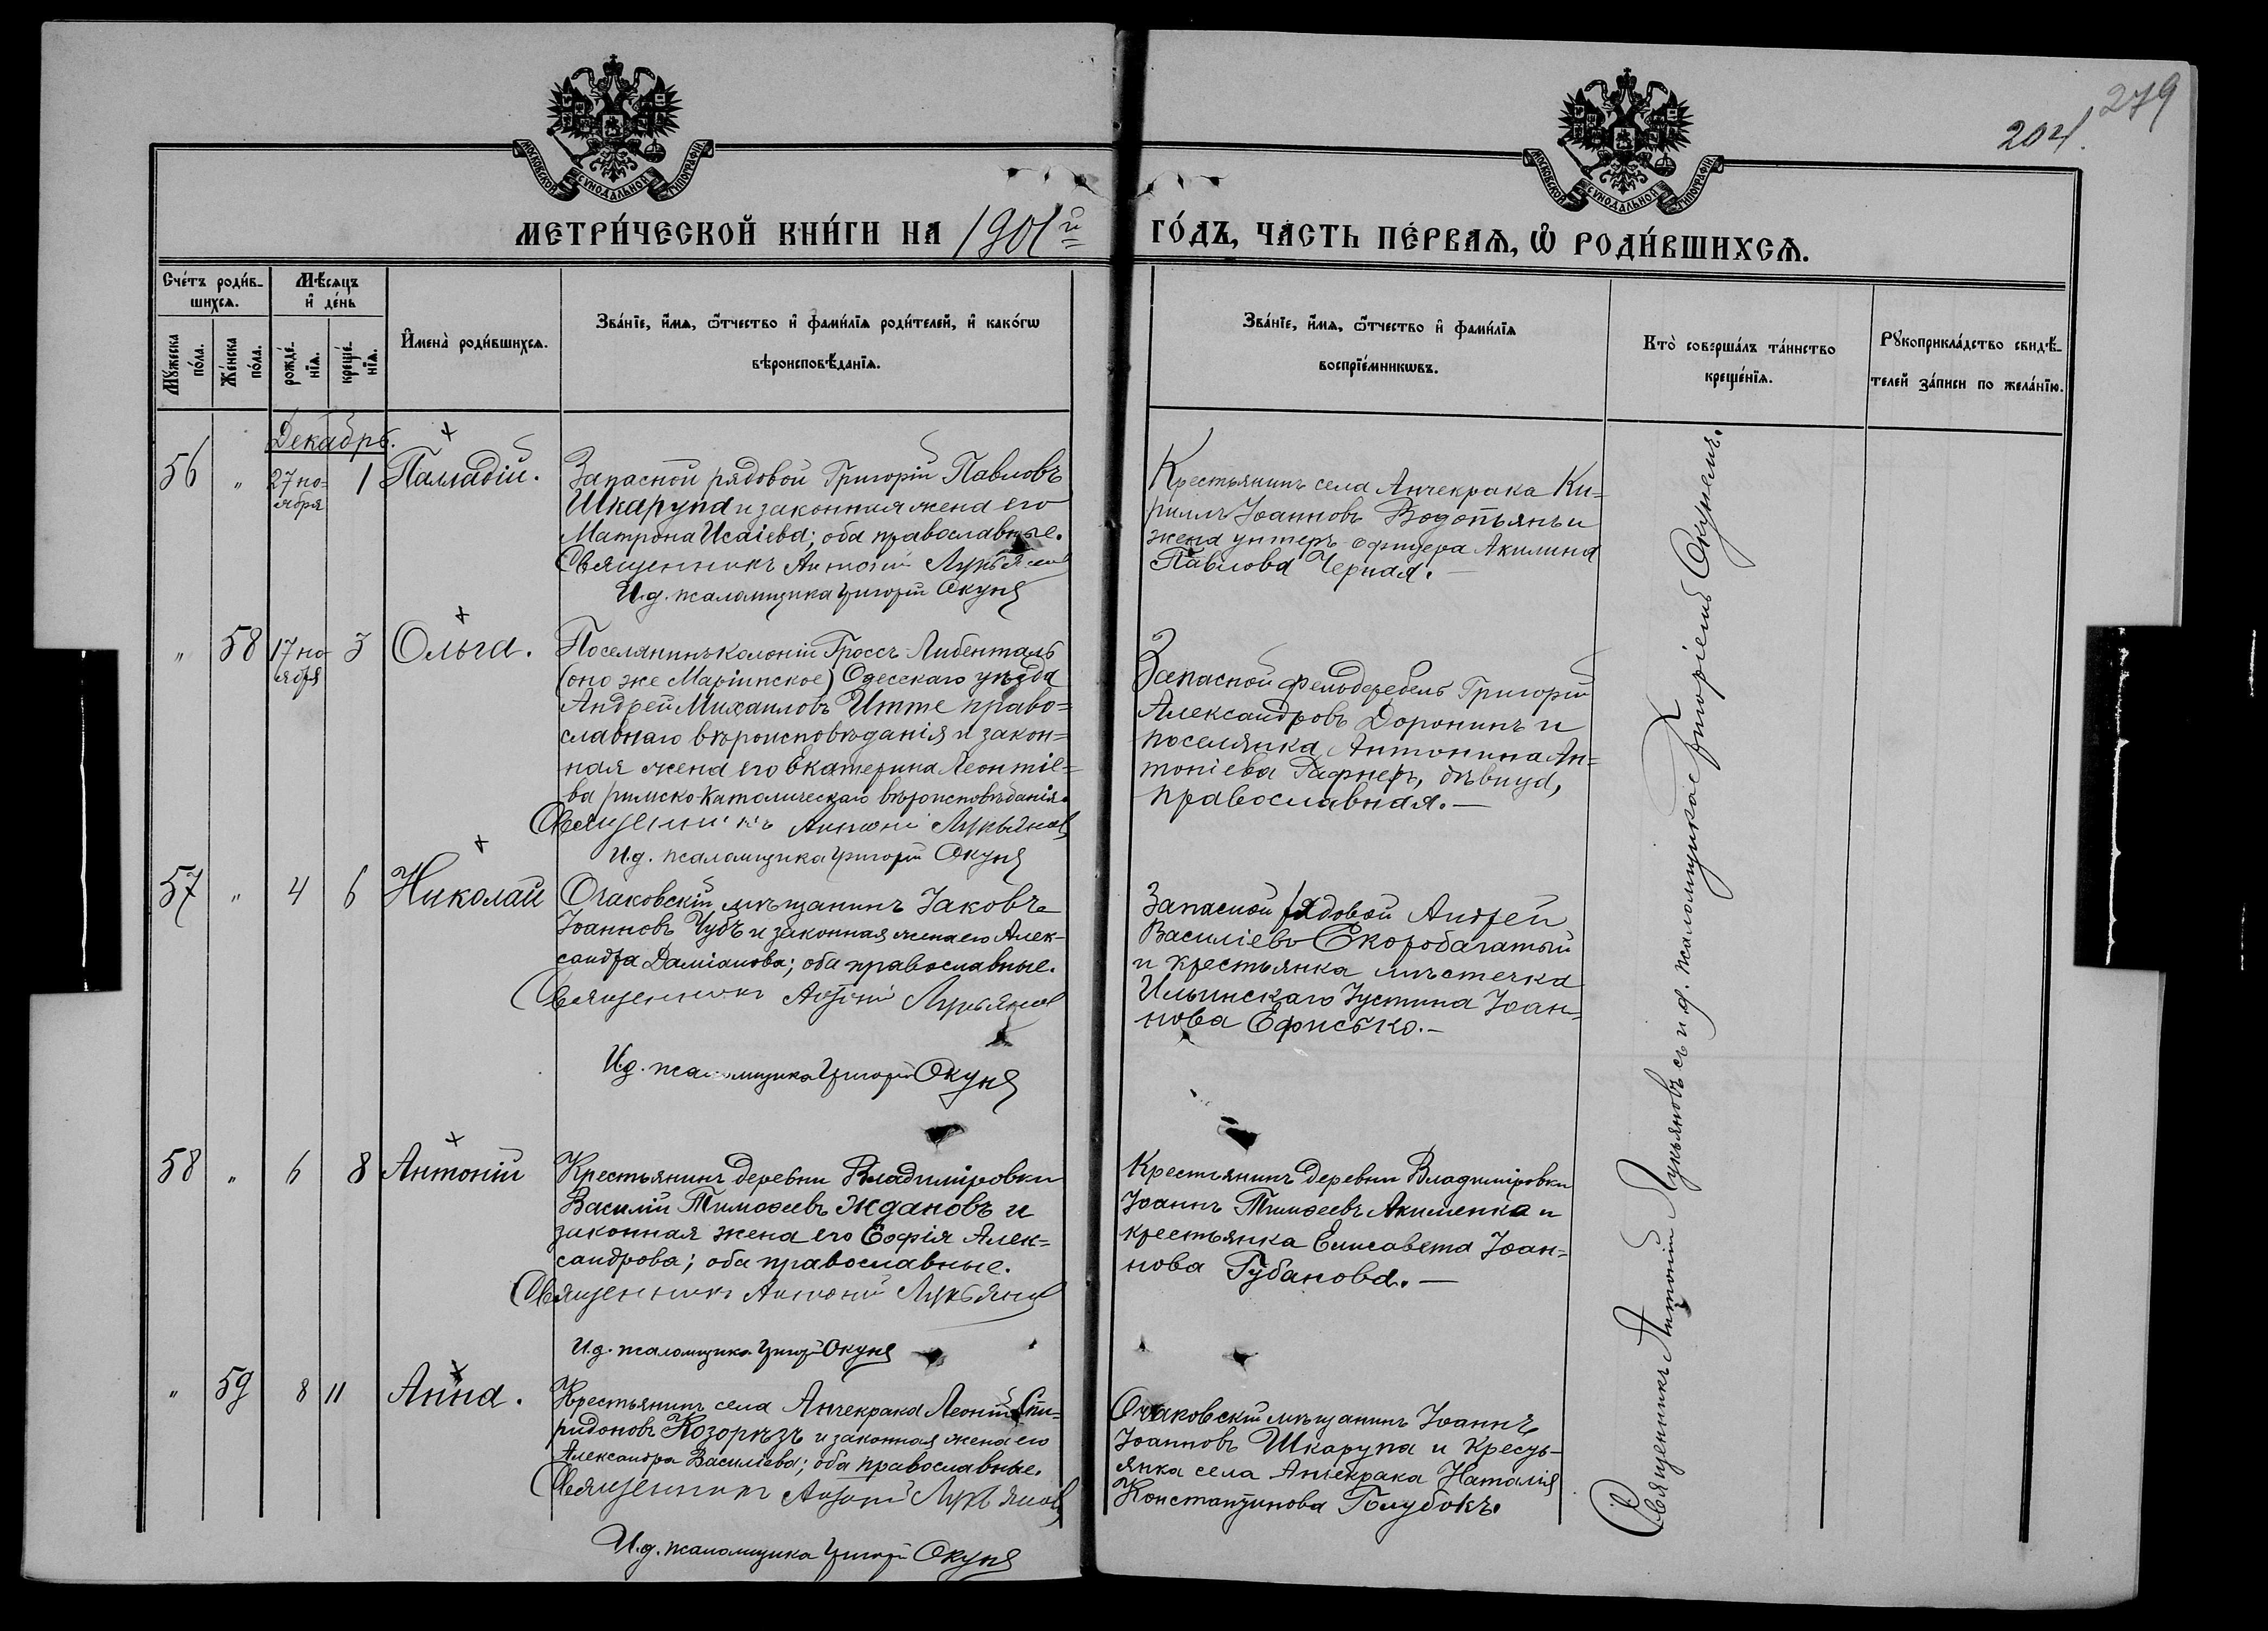 279
204.
МОСКОВСКОЙ СѴНОДАЛЬНОЙ ТИПОГРАФІИ
МОСКОВСКОЙ СѴНОДАЛЬНОЙ ТИПОГРАФІИ
МЕТРИ́ЧЕСКОЙ КНИ́ГИ НА 1901й
ГО́ДЪ, ЧА́СТЬ ПЕ́РВАѦ, Ѽ РОДИ́ВШИХСѦ.
Сче́тъ роди́в-
шихсѧ.
Мѣ́сѧцъ
и҆ де́нь
Мꙋ́жеска
по́ла.
Же́нска
по́ла.
рожде́-
нїѧ.
креще́-
нїѧ.
И҆мена̀ роди́вшихсѧ.
Зва́нїе, и҆́мѧ, ѻ҆́тчество и҆ фами́лїѧ роди́телей, и҆ како́гѡ
вѣроисповѣ́данїѧ.
Зва́нїе, и҆́мѧ, ѻ҆́тчество и҆ фами́лїѧ
воспрїе́мникѡвъ.
Кто̀ соверша́лъ та́инство
креще́нїѧ.
Рꙋкоприкла́дство свидѣ́-
телей за́писи по жела́нїю.
Декабрь.
56 " 27 но-
ября
1 Палладій.
Запасной рядовой Григорій Павловъ
Шкарупа и законная жена его
Матрона Исаіева; оба православные.
Священникъ Антоній Лукьянов
И.д. псаломщика Григорій Окунь
Крестьянинъ села Анчекрака Ки-
риллъ Іоанновъ Водопьянъ и
жена унтеръ-офицера Акилина
Павлова Черная.—
" 58 17 но-
ября
3 Ольга.
Поселянинъ колоніи Гроссъ-Либенталь
(оно же Маріинское) Одесскаго уѣзда
Андрей Михаиловъ Итте право-
славнаго вѣроисповѣданія и закон-
ная жена его Екатерина Леонтіе-
ва римско-католическаго вѣроисповѣданія.
Священникъ Антоній Лукьянов
И.д. псаломщика Григорій Окунь
Запасной фельдфебель Григорій
Александровъ Доронинъ и
поселянка Антонина Ан-
тоніева Гафнеръ, дѣвица,
православная.—
57 " 4 6 Николай
Очаковскій мѣщанинъ Іаковъ
Іоанновъ Чубъ и законная жена его Алек-
сандра Даміанова; оба православные.
Священникъ Антоній Лукьянов
И.д. псаломщика Григорій Окунь
Запасной рядовой Андрей
Василіевъ Скоробагатый
и крестьянка мѣстечка
Ильинскаго Іустина Іоан-
нова Ефисько.—
58 " 6 8 Антоній
Крестьянинъ деревни Владиміровки
Василій Тимоѳеевъ Ждановъ и
законная жена его Софія Алек-
сандрова; оба православные.
Священникъ Антоній Лукьянов
И.д. псаломщика Григорій Окунь
Крестьянинъ деревни Владиміровки
Іоаннъ Тимоѳеевъ Акименко и
крестьянка Елисавета Іоан-
нова Губанова.—
" 59 8 11 Анна.
Крестьянинъ села Анчекрака Леонтій Спи-
ридоновъ Козорѣзъ и законная жена его
Александра Василіева; оба православные.
Священникъ Антоній Лукьянов
И.д. псаломщика Григорій Окунь
Очаковскій мѣщанинъ Іоаннъ
Іоанновъ Шкарупа и кресть-
янка села Анчекрака Наталія
Константинова Голубокъ.
Священникъ Антоній Лукьяновъ съ и.д. псаломщикое Григоріемъ Окунемъ.